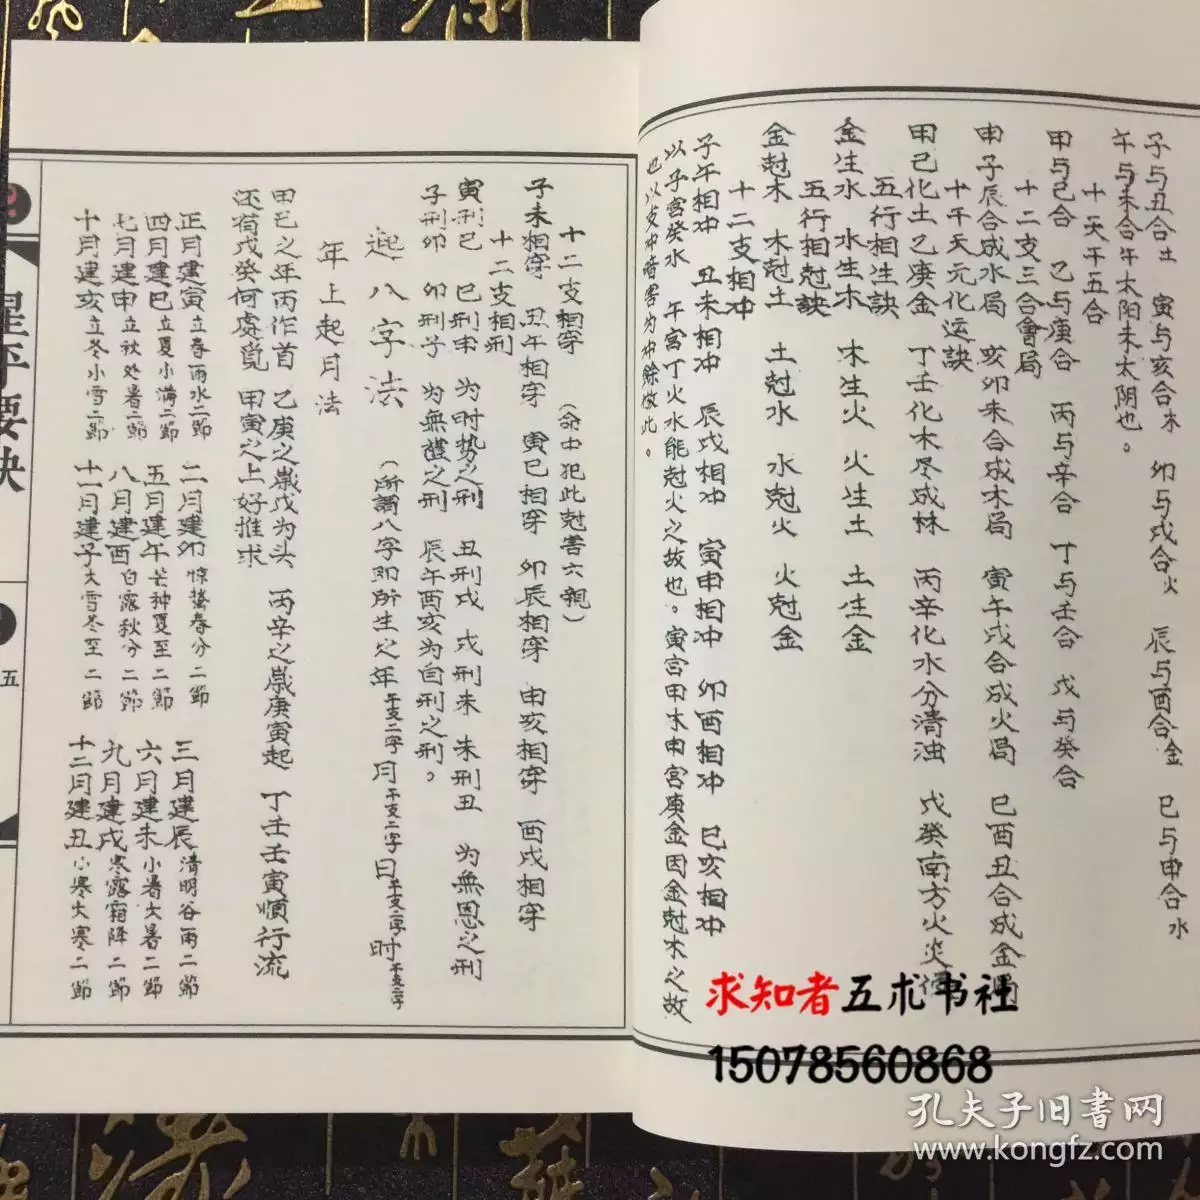 子与丑合土　寅与亥合木　卯与戌合火　辰与酉合金　巳与申合水
午与未合午太阳未太阴也。
十天干五合
甲与己合　乙与庚合　丙与辛合　丁与壬合　戊与癸合
十二支三合會局
申子辰合成水局　亥卯未合成木局　寅午戌合成火局　巳酉丑合成金局
十干天元化运訣
甲己化土乙庚金　丁壬化木尽成林　丙辛化水分清浊　戊癸南方火炎
五行相生訣
金生水　水生木　木生火　火生土　土生金
五行相尅訣
金尅木　木尅土　土尅水　水尅火　火尅金
十二支相冲
子午相冲　丑未相冲　辰戌相冲　寅申相冲　卯酉相冲　巳亥相冲
以子宫癸水　午宫丁火水能尅火之故也。寅宫甲木申宫庚金因金尅木之故
也以支冲暗害为冲餘倣此。
十二支相穿　（命中犯此尅害六親）
子未相穿　丑午相穿　寅巳相穿　卯辰相穿　申亥相穿　酉戌相穿
十二支相刑
寅刑巳　巳刑申　为时势之刑　丑刑戌　戌刑未　未刑丑　为無恩之刑
子刑卯　卯刑子　为無禮之刑　辰午酉亥为自刑之刑。
起八字法　（所謂八字即所生之年干支二字月干支二字日干支二字时干支二字
年上起月法
甲己之年丙作首　乙庚之歲戊为头　丙辛之歲庚寅起　丁壬壬寅順行流
还有戊癸何處覓　甲寅之上好推求
正月建寅立春雨水二節　二月建卯惊蟄春分二節　三月建辰清明谷雨二節
四月建巳立夏小满二節　五月建午芒种夏至二節　六月建未小暑大暑二節
七月建申立秋处暑二節　八月建酉白露秋分二節　九月建戌寒露霜降二節
十月建亥立冬小雪二節　十一月建子大雪冬至二節　十二月建丑小寒大寒二節
星平要诀
五
求知者五术书社
15078560868
孔夫子旧書网
www.kongfz.com